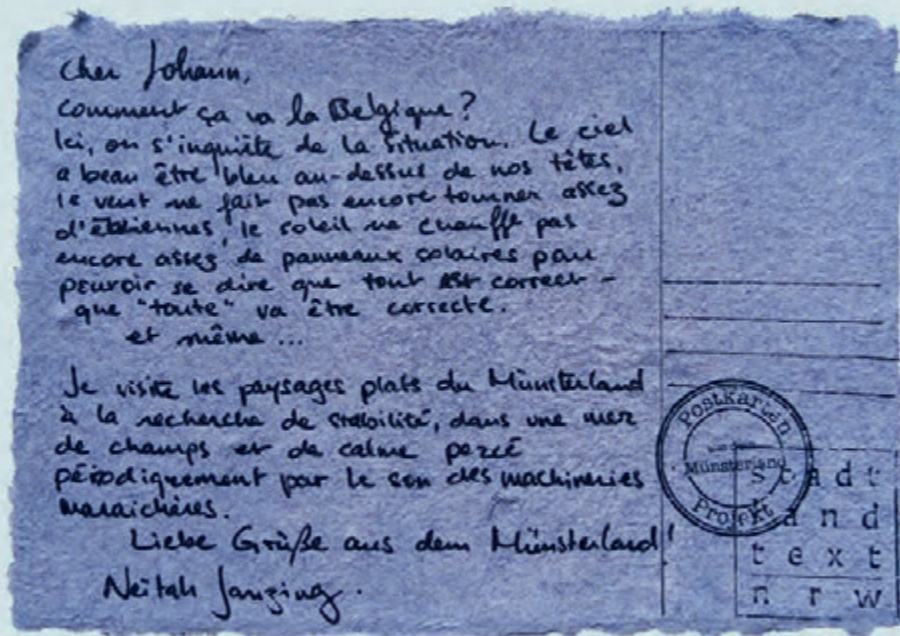 Cher Johann,
comment ça va la Belgique?
Ici, on s'inquiète de la situation. Le ciel
a beau être bleu au-dessus de nos têtes,
le vent ne fait pas encore tourner assez
d'éoliennes, le soleil ne chauffe pas
encore assez de panneaux solaires pour
pouvoir se dire que tout est correct -
que "toute" va être correcte.
et même ...
Je visite les paysages plats du Münsterland
à la recherche de stabilité, dans une mer
de champs et de calme percé
périodiquement par le son des machineries
maraichères.
Liebe Grüße aus dem Münsterland!
Postkarten
aus dem
Münsterland
Projekt
stadt
land
text
nrw